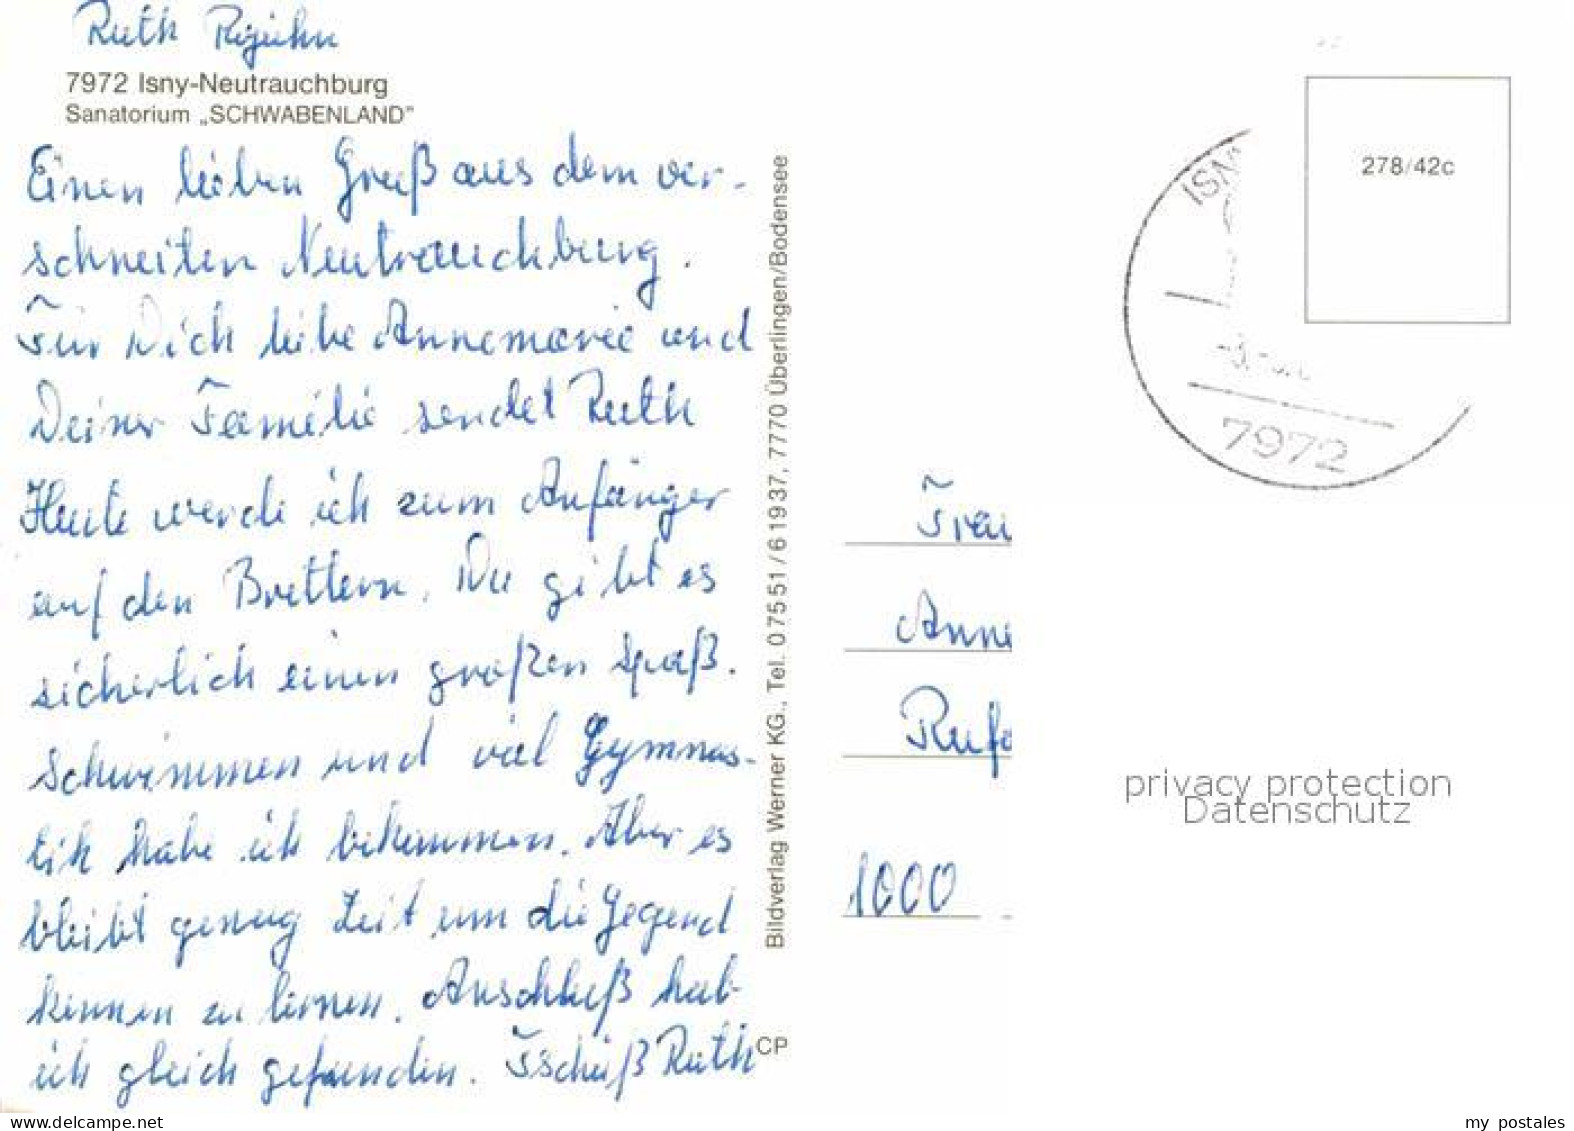 Ruth Rejuhn
7972 Isny-Neutrauchburg
Sanatorium „SCHWABENLAND”
Einen lieben Gruß aus dem ver-
schneiten Neutrauchburg.
Für Dich liebe Annemarie und
Deiner Familie sendet Ruth
Heute werde ich zum Anfänger
auf den Brettern. Da gibt es
sicherlich einen großen Spaß.
Schwimmen und viel Gymnas-
tik habe ich bekommen. Aber es
bleibt genug Zeit um die Gegend
kennen zu lernen. Anschluß hab
ich gleich gefunden. Tschüß Ruth
Bildverlag Werner KG., Tel. 07551/61937, 7770 Überlingen/Bodensee
CP
278/42c
ISNY
7972
Frau
Anne
Rufa
1000
privacy protection
Datenschutz
www.delcampe.net
my postales